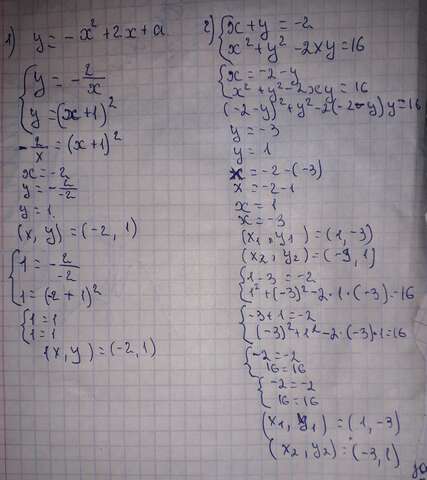 1) y = -x² + 2x + a
{ y = -2/x
{ y = (x+1)²
-2/x = (x+1)²
x = -2
y = -2/-2
y = 1
(x, y) = (-2, 1)
{ 1 = -2/-2
{ 1 = (-2+1)²
{ 1 = 1
{ 1 = 1
(x, y) = (-2, 1)
2) { x + y = -2
{ x² + y² - 2xy = 16
{ x = -2 - y
{ x² + y² - 2xy = 16
(-2-y)² + y² - 2(-2-y)y = 16
y = -3
y = 1
x = -2 - (-3)
x = -2 - 1
x = 1
x = -3
(x₁, y₁) = (1, -3)
(x₂, y₂) = (-3, 1)
{ 1 - 3 = -2
{ 1² + (-3)² - 2·1·(-3) = 16
{ -3 + 1 = -2
{ (-3)² + 1² - 2·(-3)·1 = 16
{ -2 = -2
{ 16 = 16
{ -2 = -2
{ 16 = 16
(x₁, y₁) = (1, -3)
(x₂, y₂) = (-3, 1)